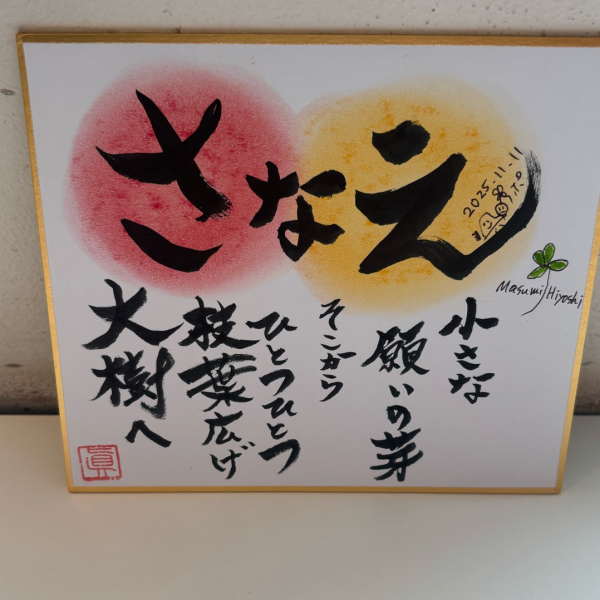 さなえ
2025.11.11
Masumi Hiyoshi
小さな
願いの芽
そこから
ひとつひとつ
枝葉広げ
大樹へ
眞